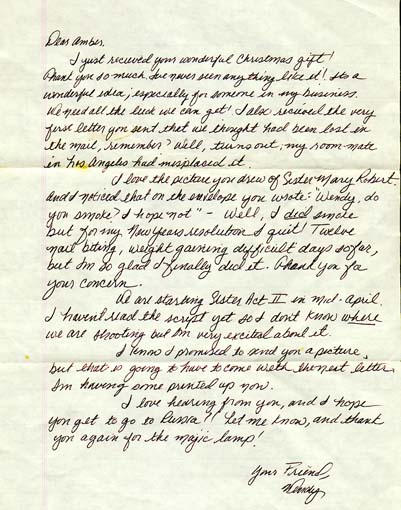 Dear Amber,
I just recieved your wonderful Christmas gift!
Thank you so much. I've never seen anything like it! Its a
wonderful idea; especially for someone in my business.
We need all the luck we can get! I also recieved the very
first letter you sent that we thought had been lost in
the mail, remember? Well, turns out, my room-mate
in Los Angeles had misplaced it.
I love the picture you drew of Sister Mary Robert.
and I noticed that on the envelope you wrote: "Wendy, do
you smoke? I hope not" - Well, I did smoke
but for my New Years resolution I quit! Twelve
nail biting, weight gaining difficult days so far,
but I'm so glad I finally did it. Thank you for
your concern.
We are starting Sister Act II in mid-April.
I haven't read the script yet so I don't know where
we are shooting but I'm very excited about it.
I know I promised to send you a picture,
but that is going to have to come with the next letter.
I'm having some printed up now.
I love hearing from you, and I hope
you get to go to Russia!! Let me know, and thank
you again for the majic lamp!
Your Friend,
Wendy